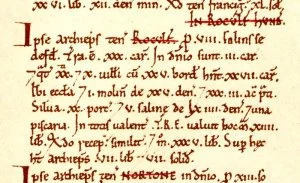 xxvi lib. 7 xii den min. 7 de francig xl. sol
IN ROCULF HVND.
Ipse archieps ten ROCULF. p. VIII. solins se
defd. Tra. e. xxx. car. In dnio sunt. III. car.
7 qt xx. 7 x. uilli cu xxv. bord. hnt xxvii. car.
Ibi eccla 7 I. molin de xxv. den. 7 xxxiii. ac pti.
Silua. xx. porc. 7 v. saline de lxiiii. den. 7 una
piscaria. In totis ualent. T.R.E. ualuit hoc m xiiii.
lib. Qdo recep. simil. 7 m. xxxv. lib. Sup hec
ht archieps VII. lib 7 VII. solid.
Ipse archieps ten NORTONE in dnio. p xiii. so